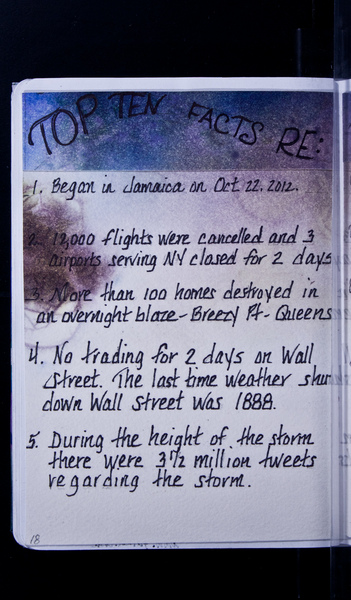 TOP TEN FACTS RE:
1. Began in Jamaica on Oct. 22, 2012.
2. 12,000 flights were cancelled and 3
airports serving NY closed for 2 days
3. More than 100 homes destroyed in
an overnight blaze - Breezy Pt - Queens
4. No trading for 2 days on Wall
Street. The last time weather shut
down Wall Street was 1888.
5. During the height of the storm
there were 3 1/2 million tweets
regarding the storm.
18